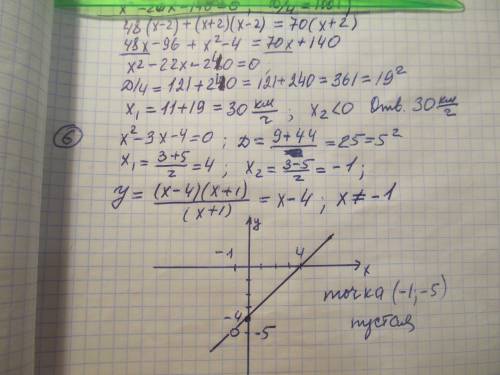 48(x-2)+(x+2)(x-2)=70(x+2)
48x-96+x²-4=70x+140
x²-22x-240=0
D/4=121+240=121+240=361=19²
x₁=11+19=30 км/ч; x₂<0 Отв. 30 км/ч
⑥ x²-3x-4=0; D=9+4·4=25=5²
x₁=(3+5)/2=4; x₂=(3-5)/2=-1;
y=((x-4)(x+1))/(x+1)=x-4; x≠-1
y
-1 4 x
точка (-1;-5)
-4 пустая
-5